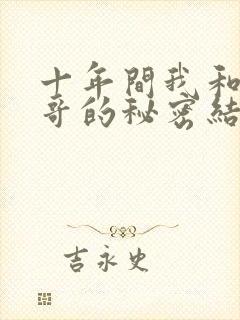 十年間我和
哥的秘密結
吉永史